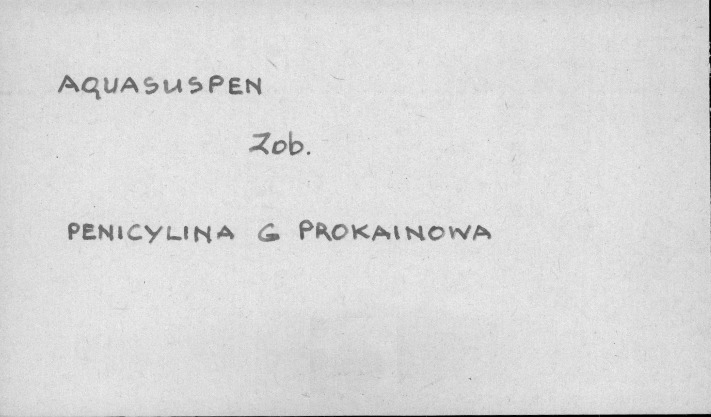 AQUASUSPEN
Zob.
PENICYLINA G PROKAINOWA